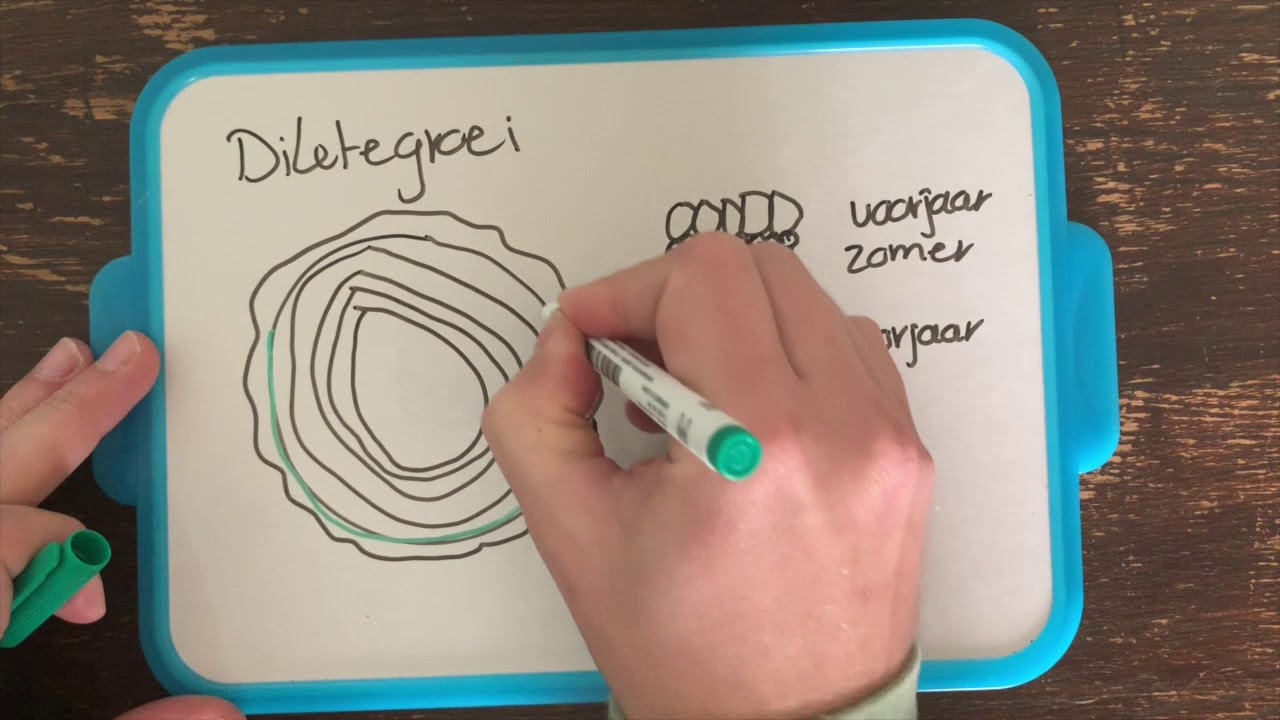 Diktegroei
voorjaar
zomer
orjaar